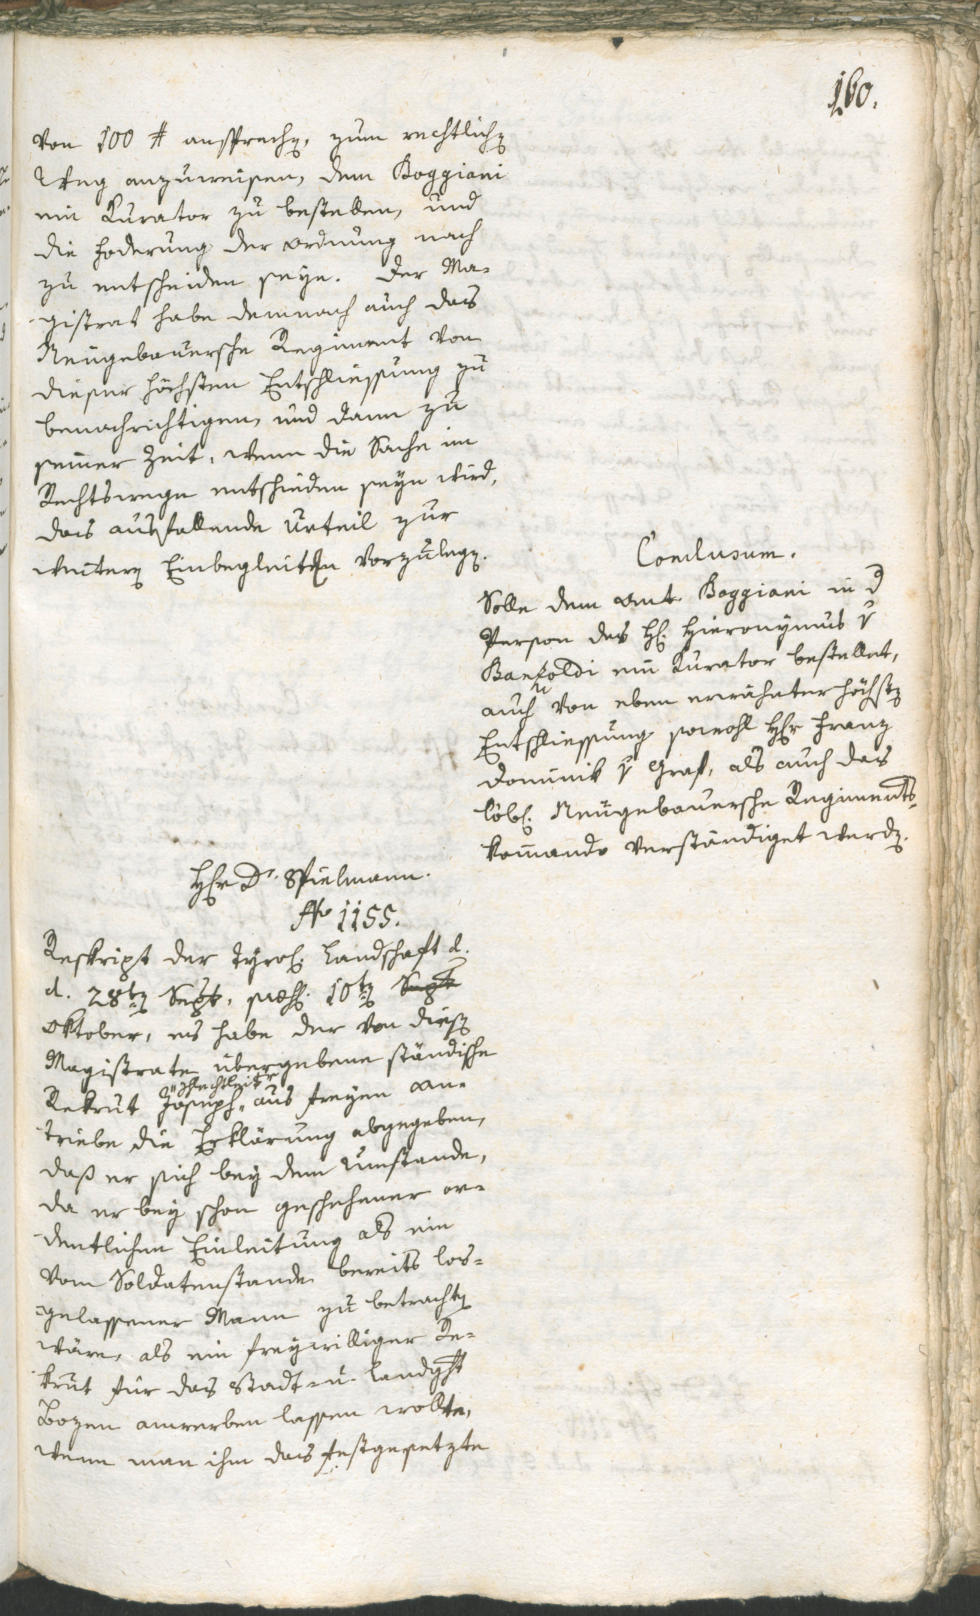 160.
von 100 # ansprechen, zum rechtlichen
Weg anzuweisen, dem Boggiani
ein Kurator zu bestellen, und
die Foderung der Ordnung nach
zu entscheiden seye. Der Ma-
gistrat habe demnach auch das
Neugebauersche Regiment von
dieser höchsten Entschliessung zu
benachrichtigen, und dann zu
seiner Zeit, wenn die Sache im
Rechtswege entschieden seyn wird,
das ausfallende Urteil zur
weitern Einbegleiten vorzulegen.
Conclusum.
Solle dem Ant. Boggiani in d
Person des H. Hieronymus v
Banfoldi ein Kurator bestellet,
auch von eben erwähnter höchsten
Entschliessung sowohl Hr Franz
Dominik v Graf, als auch das
löbl. Neugebauersche Regiments-
kommando verständiget werden.
Hr Dr. Spielmann.
No 1155.
Reskript der Tyrol. Landschaft d.
d. 28ten Sept, præs. 10ten Sept
Oktober, es habe der von diesem
Magistrate übergebene ständische
Rekrut Joseph, aus freyem An-
triebe die Erklärung abgegeben,
daß er sich bey dem Umstande,
da er bey schon geschehener or-
dentlichen Einleitung als ein
vom Soldatenstande bereits los-
gelassener Mann zu betrachten
wäre, als ein freywilliger Re-
krut für das Stadt- u. Landght
Bozen anwerben lassen wollte,
wenn man ihm das festgesetzte